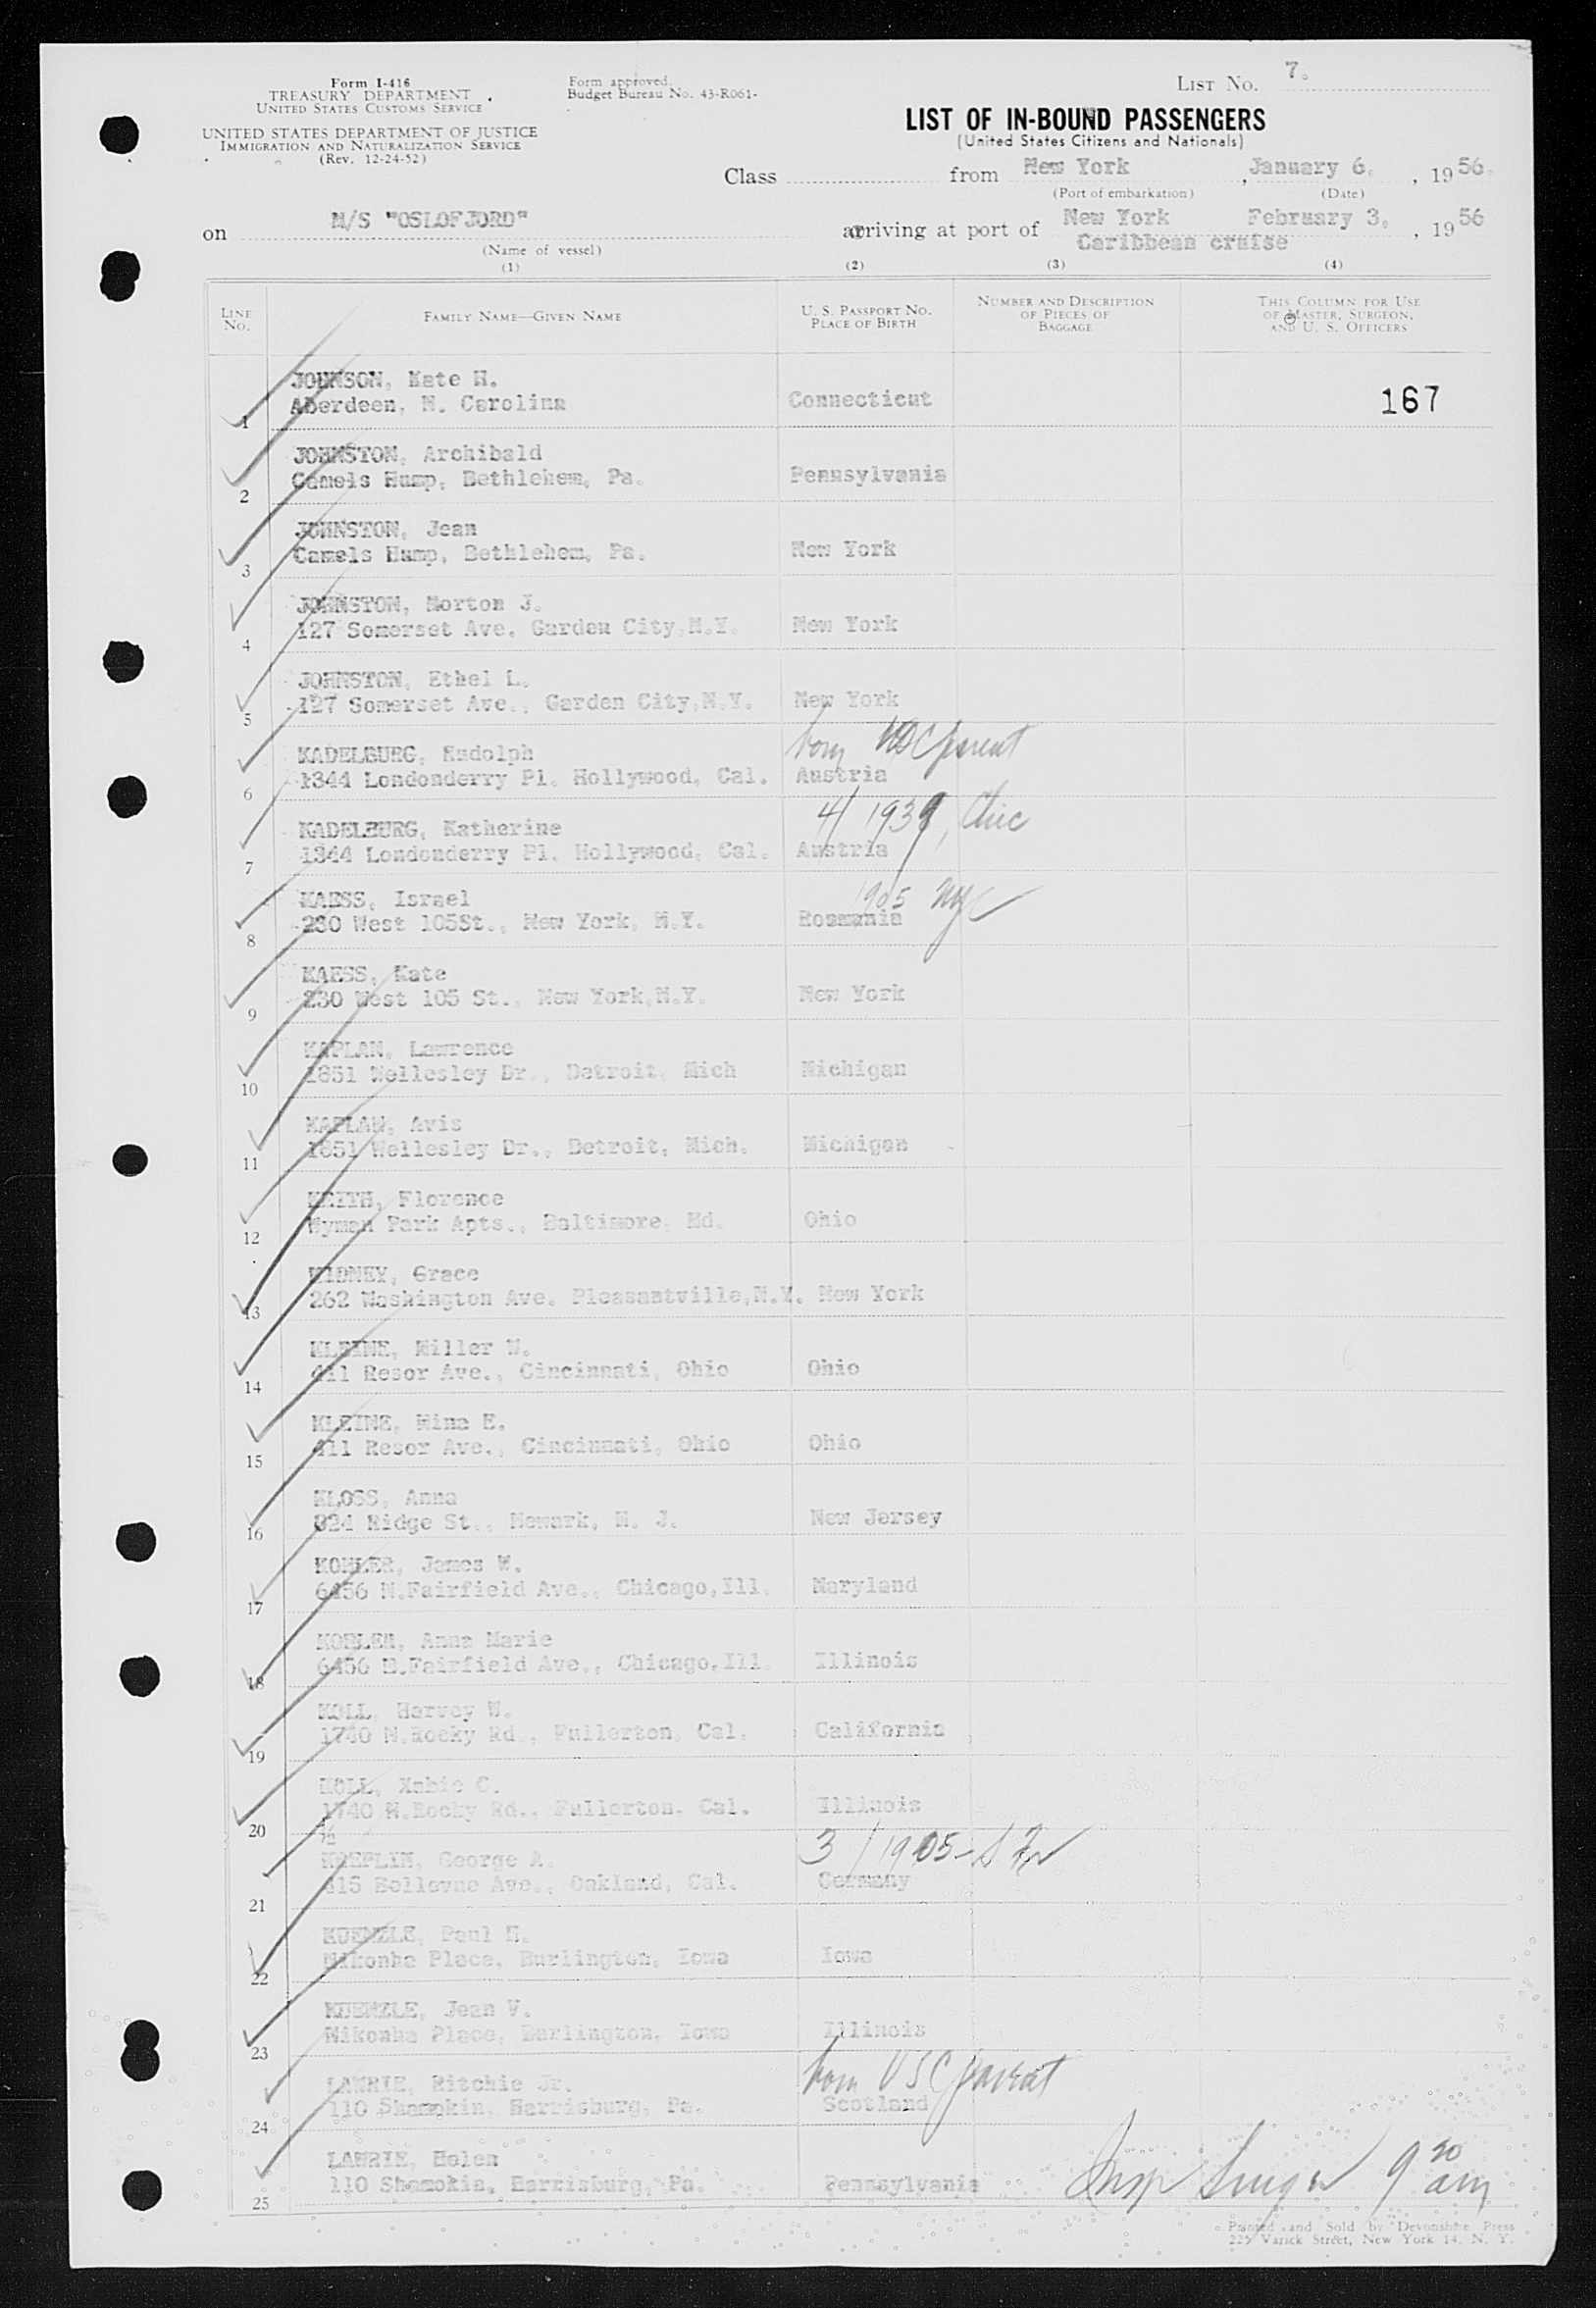 Form I-416
TREASURY DEPARTMENT
UNITED STATES CUSTOMS SERVICE
UNITED STATES DEPARTMENT OF JUSTICE
IMMIGRATION AND NATURALIZATION SERVICE
(Rev. 12-24-52)
Form approved.
Budget Bureau No. 43-R061-
LIST No. 7.
LIST OF IN-BOUND PASSENGERS
(United States Citizens and Nationals)
Class from New York, January 6, 1956.
(Port of embarkation) (Date)
on M/S "OSLOFJORD" arriving at port of New York February 3, 1956
(Name of vessel) Caribbean cruise
(1) (2) (3) (4)
LINE No. FAMILY NAME—GIVEN NAME U. S. PASSPORT NO. PLACE OF BIRTH NUMBER AND DESCRIPTION OF PIECES OF BAGGAGE THIS COLUMN FOR USE OF MASTER, SURGEON, AND U. S. OFFICERS
JOHNSON, Kate H.
1 Aberdeen, N. Carolina Connecticut 167
JOHNSTON, Archibald
2 Camels Hump, Bethlehem, Pa. Pennsylvania
JOHNSTON, Jean
3 Camels Hump, Bethlehem, Pa. New York
JOHNSTON, Morton J.
4 127 Somerset Ave. Garden City, N.Y. New York
JOHNSTON, Ethel L.
5 127 Somerset Ave., Garden City, N.Y. New York
KADELBURG, Rudolph born USC parent
6 1344 Londonderry Pl. Hollywood, Cal. Austria
KADELBURG, Katherine 4/1939, Chic
7 1344 Londonderry Pl. Hollywood, Cal. Austria
KAESS, Israel 1905 NYC
8 230 West 105St., New York, N.Y. Roumania
KAESS, Kate
9 230 West 105 St., New York, N.Y. New York
KAPLAN, Lawrence
10 1851 Wellesley Dr., Detroit, Mich Michigan
KAPLAN, Avis
11 1851 Wellesley Dr., Detroit, Mich. Michigan
KEITH, Florence
12 Wyman Park Apts., Baltimore, Md. Ohio
KIDNEY, Grace
13 262 Washington Ave. Pleasantville, N.Y. New York
KLEINE, Miller W.
14 411 Resor Ave., Cincinnati, Ohio Ohio
KLEINE, Mina E.
15 411 Resor Ave., Cincinnati, Ohio Ohio
KLOSS, Anna
16 824 Ridge St., Newark, N. J. New Jersey
KOHLER, James W.
17 6456 N.Fairfield Ave., Chicago, Ill. Maryland
KOHLER, Anna Marie
18 6456 N.Fairfield Ave., Chicago, Ill. Illinois
KOLL, Harvey W.
19 1740 N.Rocky Rd., Fullerton, Cal. California
KOLL, C.
20 1740 N.Rocky Rd., Fullerton. Cal. Illinois
KREPLIN, George A. 3/1905-SF
21 415 Bellevue Ave., Oakland, Cal. Germany
KUENZLE, Paul H.
22 Place, Burlington, Iowa Iowa
KUENZLE, Jean V.
23 Place, Burlington, Iowa Illinois
LAWRIE, Ritchie Jr. born USC parent
24 110 Shamokin, Harrisburg, Pa. Scotland
LAWRIE, Helen
25 110 Shamokin, Harrisburg, Pa. Pennsylvania Insp Singer 9 30 am
Printed and Sold by Devonshire Press
225 Varick Street, New York 14, N. Y.